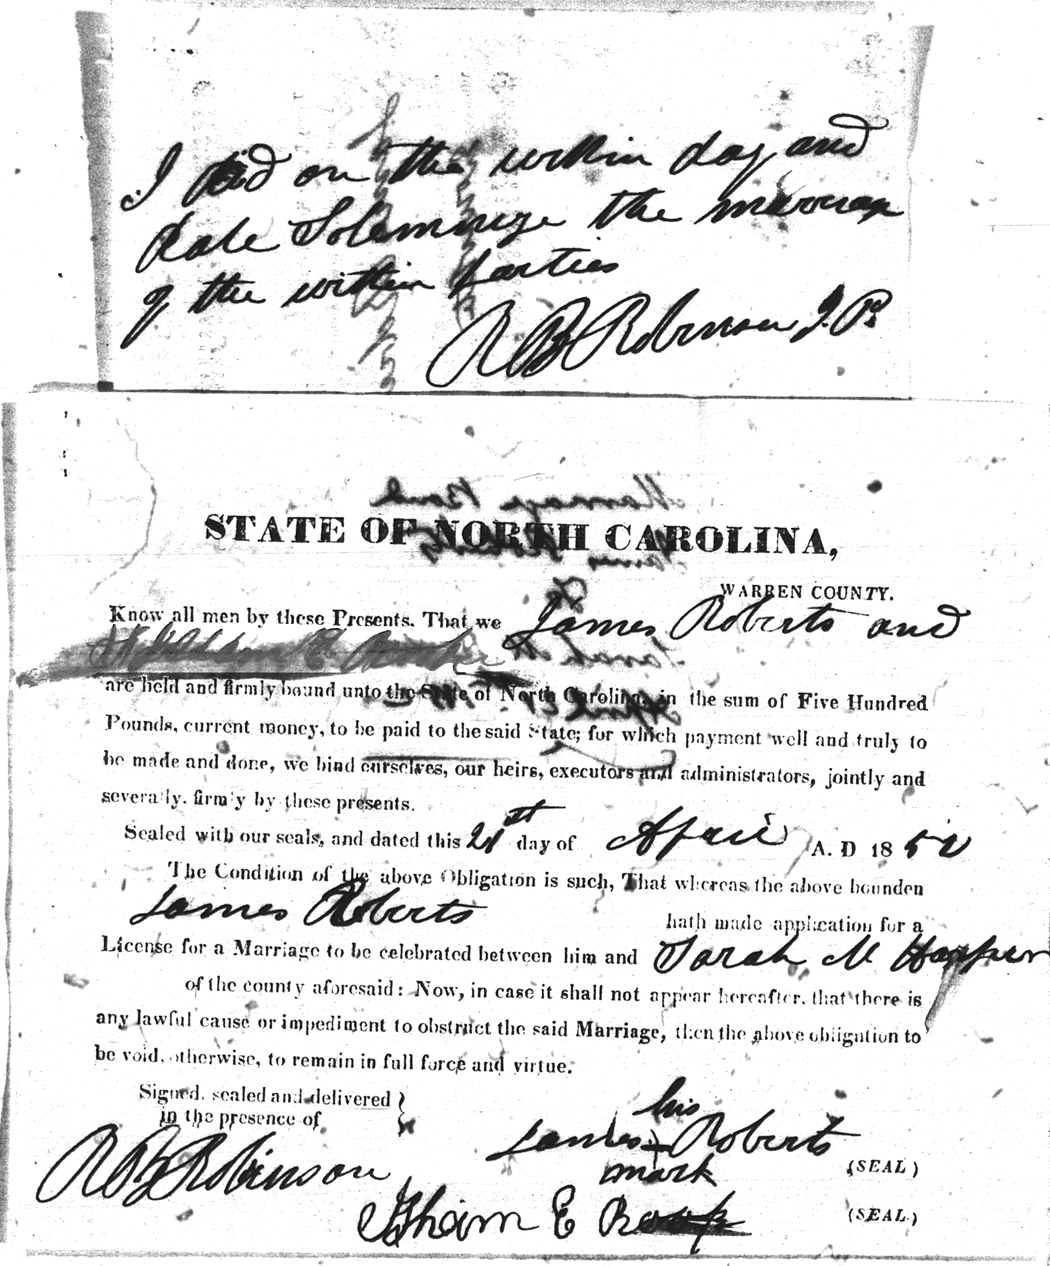 I did on the within day and
date Solemnize the marriage
of the within parties
R B Robinson J. P.
Marriage Bond
STATE OF NORTH CAROLINA,
To
WARREN COUNTY.
Know all men by these Presents, That we James Roberts and
are held and firmly bound unto the State of North Carolina, in the sum of Five Hundred
Pounds, current money, to be paid to the said State; for which payment well and truly to
be made and done, we bind ourselves, our heirs, executors and administrators, jointly and
severally, firmly by these presents.
Sealed with our seals, and dated this 21st day of April A. D 1852
The Condition of the above Obligation is such, That whereas the above bounden
James Roberts hath made application for a
License for a Marriage to be celebrated between him and Sarah M Harper
of the county aforesaid: Now, in case it shall not appear hereafter, that there is
any lawful cause or impediment to obstruct the said Marriage, then the above obligation to
be void, otherwise, to remain in full force and virtue.
Signed, sealed and delivered
in the presence of
his
James + Roberts (SEAL)
mark
R B Robinson
Isham E (SEAL)